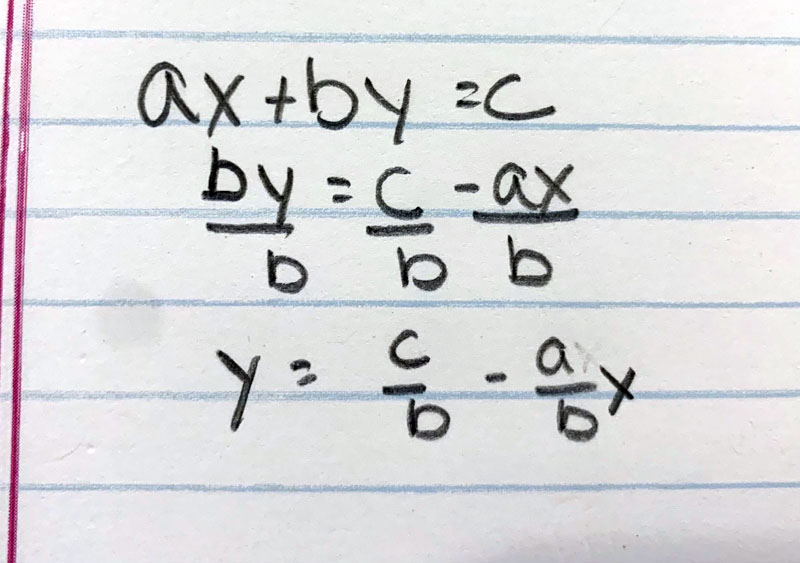 ax + by = c
by/b = c/b - ax/b
y = c/b - a/b x